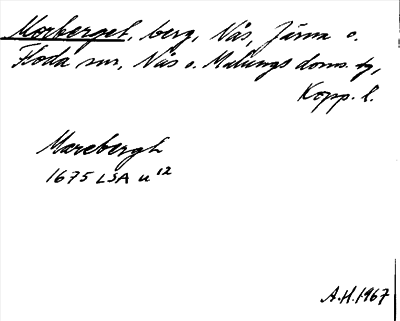 Morberget, berg, Nås, Järna o.
Floda snr, Nås o. Malungs doms. tg,
Kopp. l.
Marebergh
1675 LSA u 12
A.H. 1967